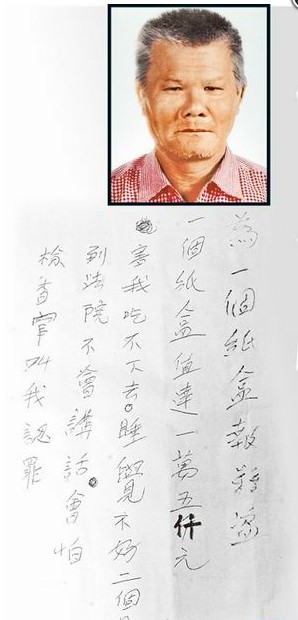 為一個紙盒報盜
一個紙盒值達一萬五仟元
害我吃不下去。睡覺不好二個
到法院不會講話。會怕
檢查官叫我認罪